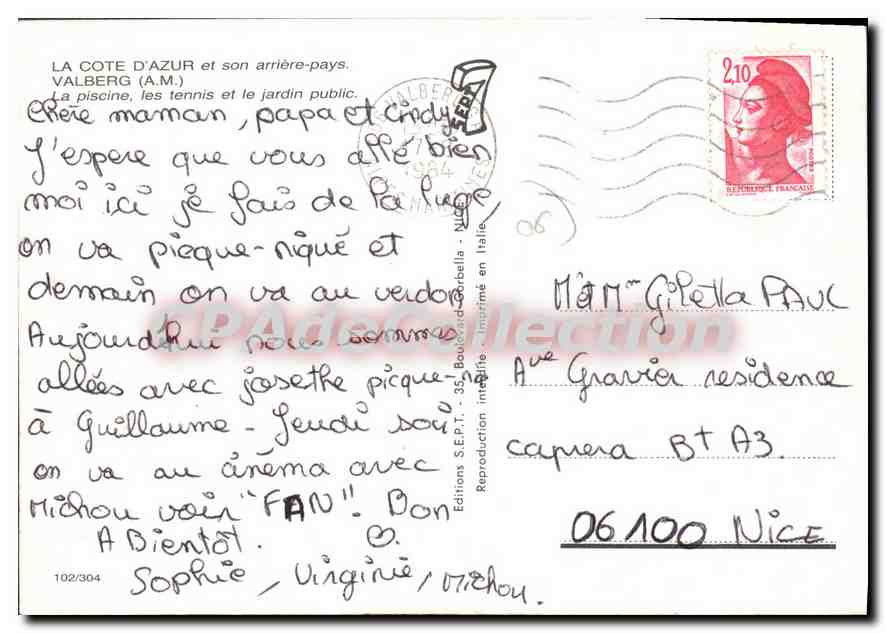 LA COTE D'AZUR et son arrière-pays.
VALBERG (A.M.)
La piscine, les tennis et le jardin public.
Chère maman, papa et Cindy
J'espere que vous allé bien
moi ici je fais de la luge,
on va picque-niqué et
demain on va au verdon
Aujourd'hui nous sommes
allées avec josethe picque-né
à Guillaume - Jeudi soir
on va au cinéma avec
Michou voir "FAN". Bon
A Bientôt.
Sophie, Virginie, Michou.
102/304
Editions S.E.P.T. - 35, Boulevard Gorbella - NICE
Reproduction interdite. Imprimé en Italie.
SEPT
VALBERG
1984
ALPES MARITIMES
2,10
REPUBLIQUE FRANCAISE
06)
M et Mme Giletta PAUL
Ave Gravier residence
caprera Bt A3.
06100 NICE
CPAdeCollection